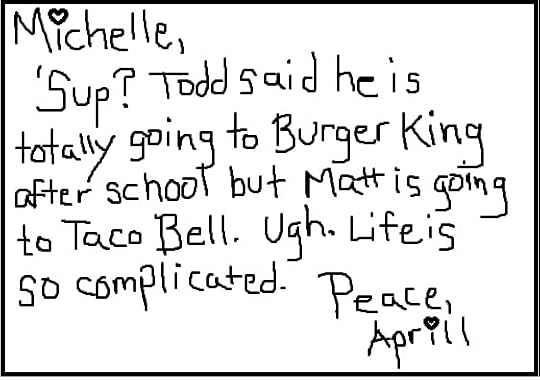 Michelle,
'Sup? Todd said he is
totally going to Burger King
after school but Matt is going
to Taco Bell. Ugh. Life is
so complicated.
Peace,
Aprill